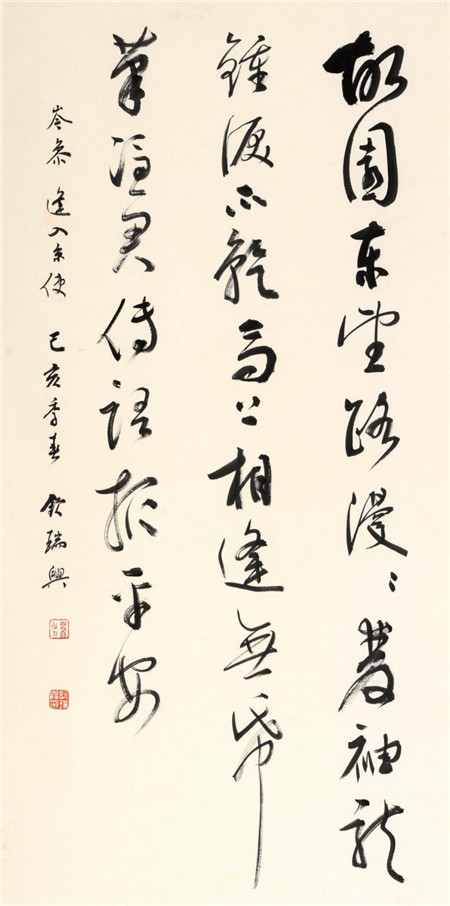 故園東望路漫〻雙袖龍
鍾淚不乾馬上相逢無帋
筆憑君傳語報平安
岑參 逢入京使 己亥季春 瑞興